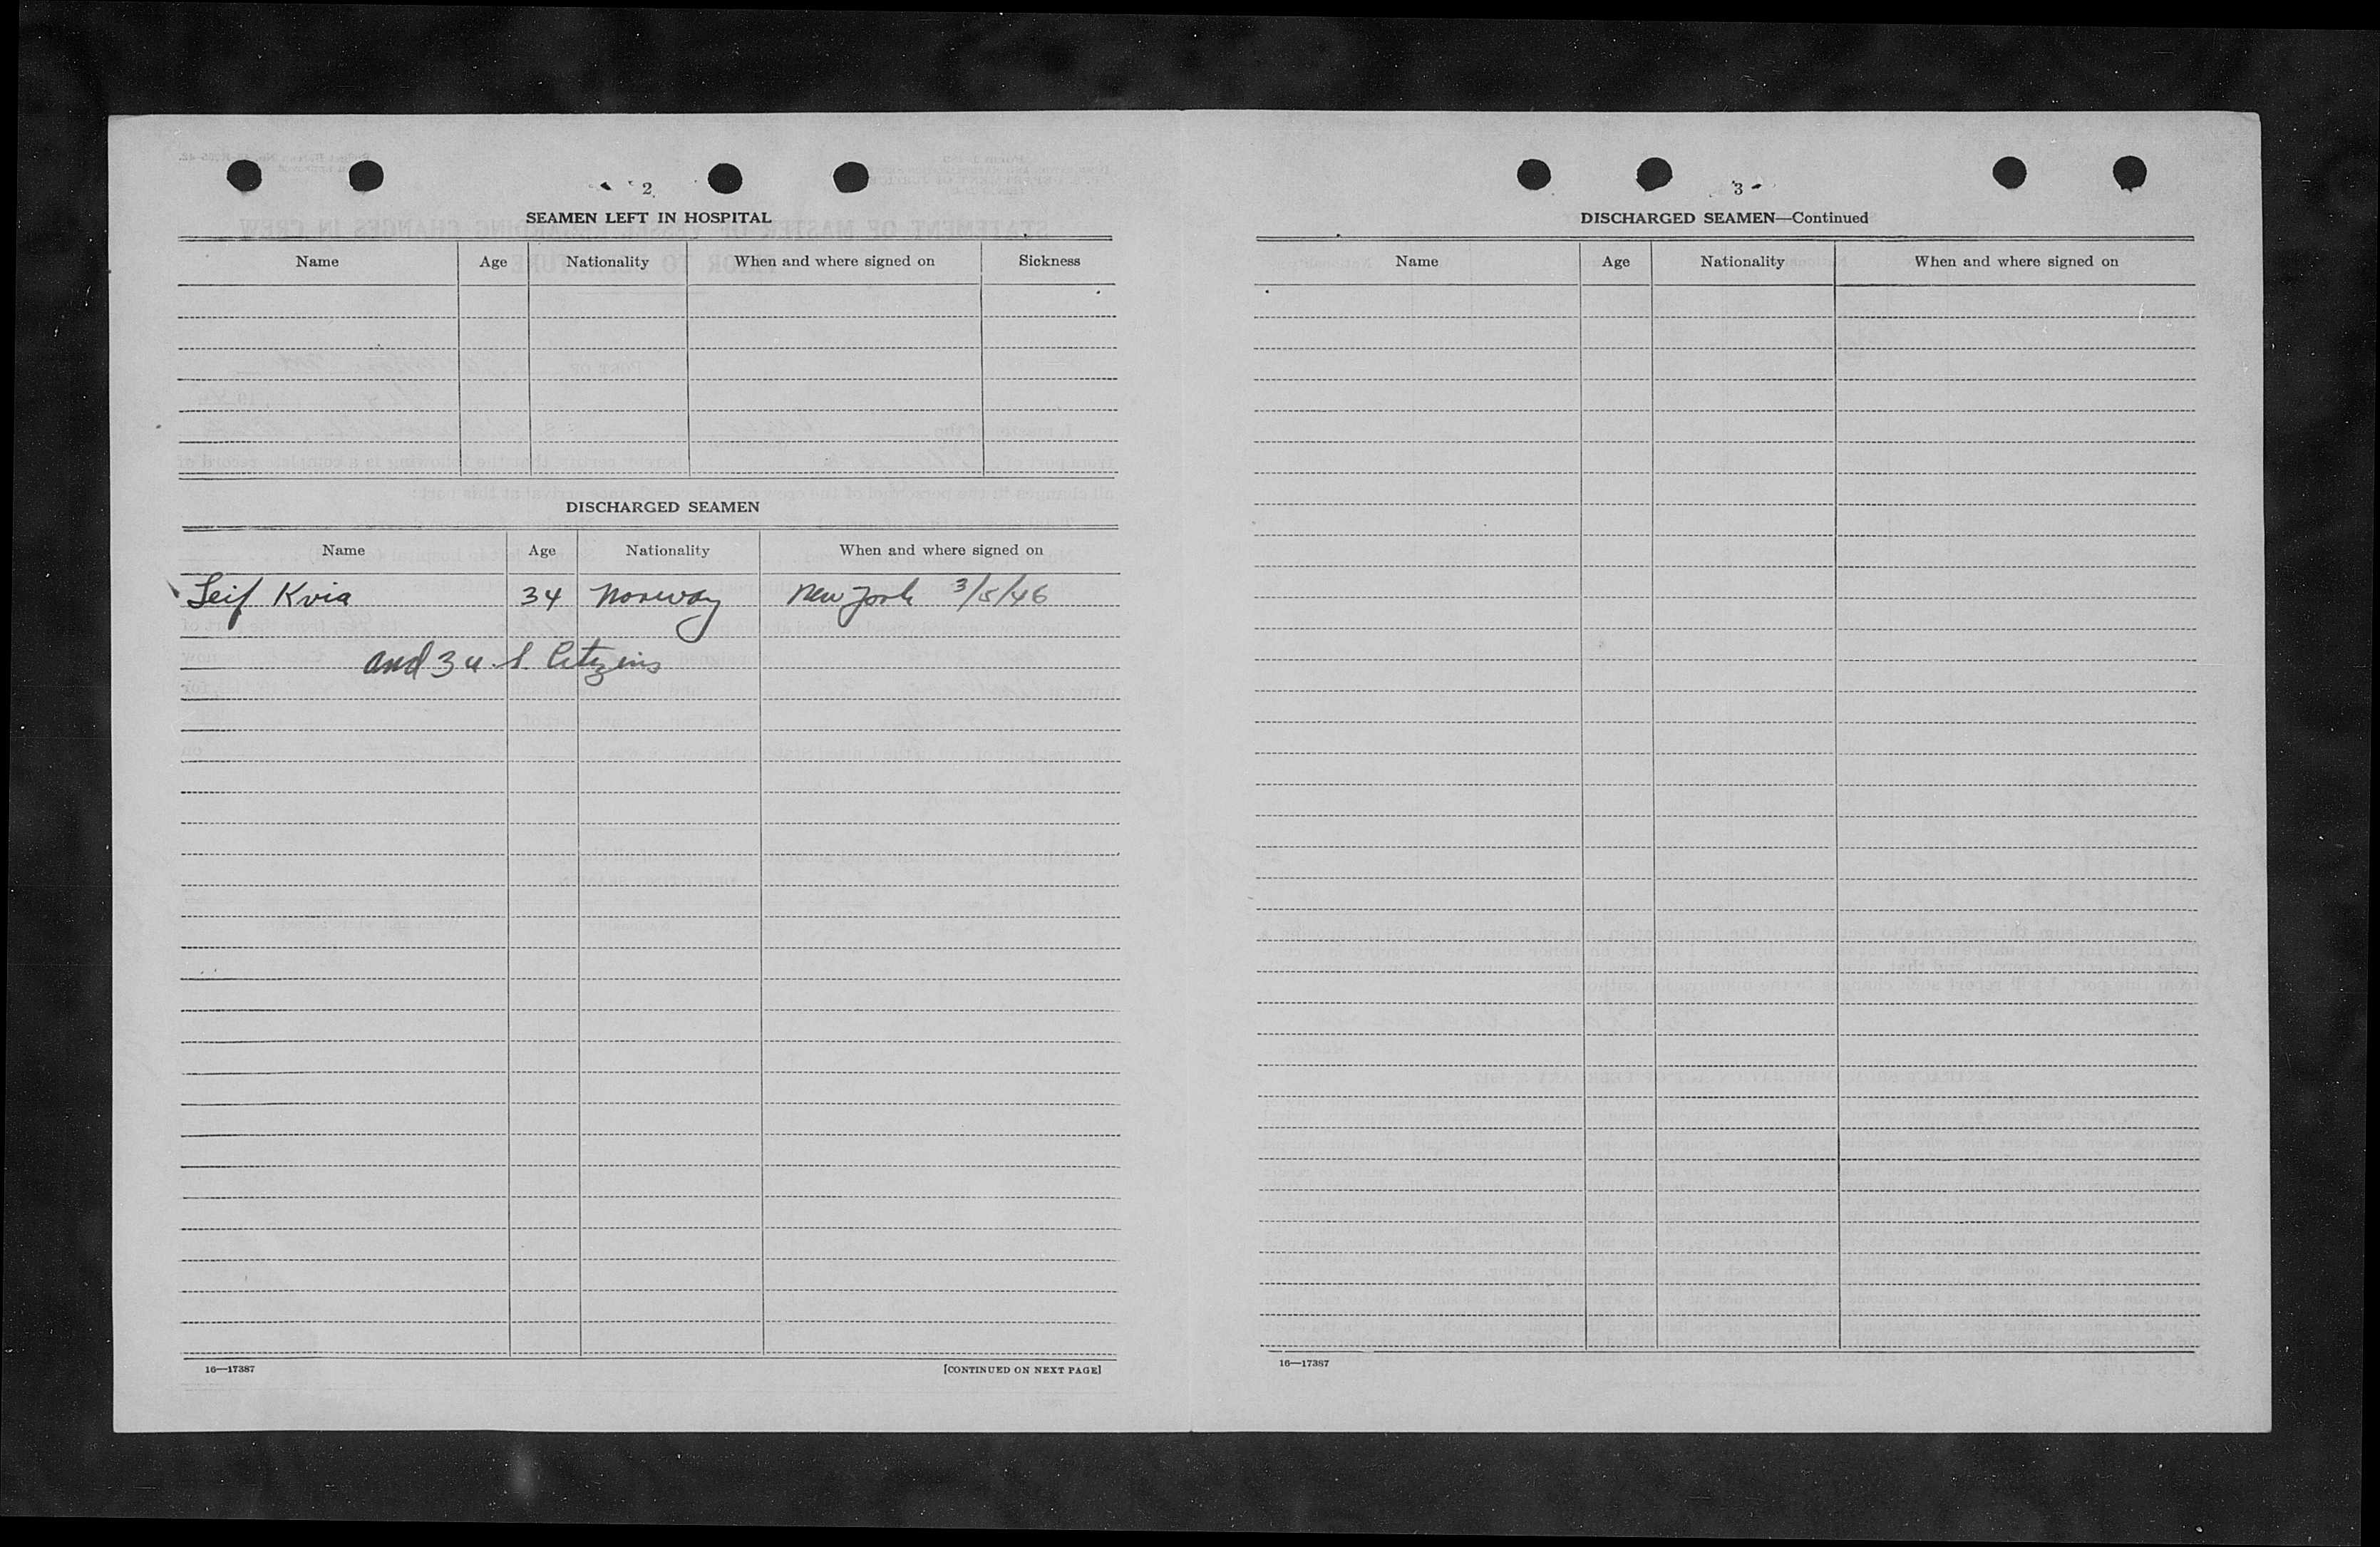 2
SEAMEN LEFT IN HOSPITAL
Name Age Nationality When and where signed on Sickness
DISCHARGED SEAMEN
Name Age Nationality When and where signed on
Leif Kvia 34 Norway New York 3/5/46
and 3 U.S. Citizens
16—17387 [CONTINUED ON NEXT PAGE]
3
DISCHARGED SEAMEN—Continued
Name Age Nationality When and where signed on
16—17387